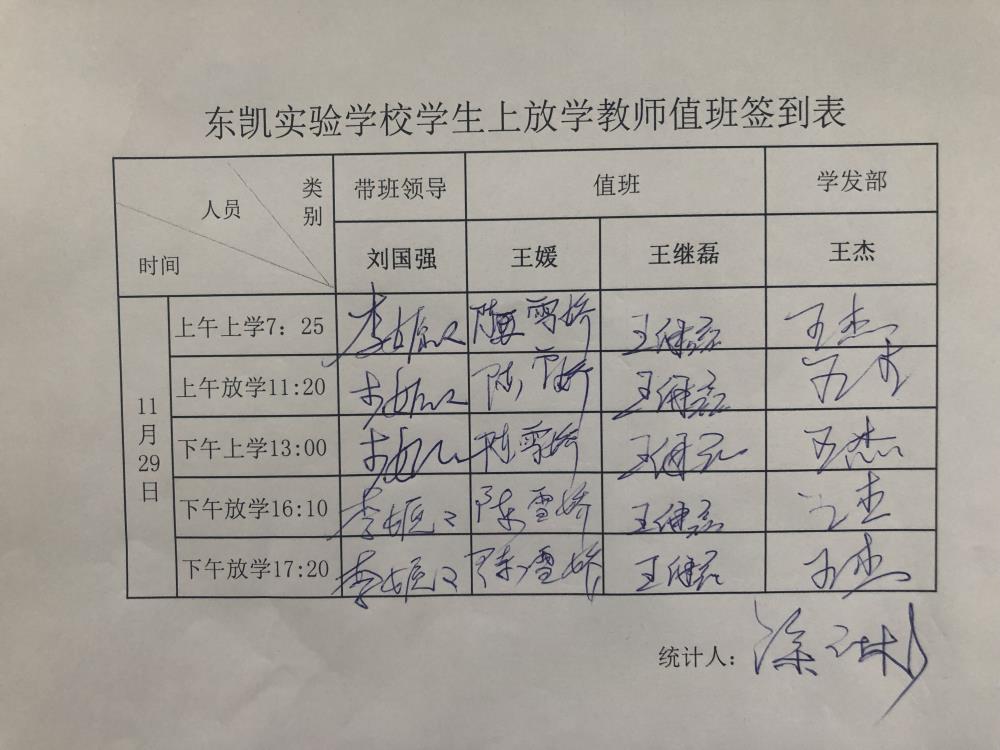 东凯实验学校学生上放学教师值班签到表
类别 人员 时间 带班领导 值班 学发部
刘国强 王媛 王继磊 王杰
11月29日
上午上学7：25 陈雪娇 王继磊 王杰
上午放学11:20 陈雪娇 王继磊 王杰
下午上学13:00 陈雪娇 王继磊 王杰
下午放学16:10 陈雪娇 王继磊 王杰
下午放学17:20 陈雪娇 王继磊 王杰
统计人：